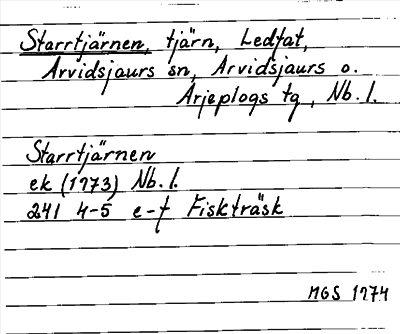 Starrtjärnen, tjärn, Ledfat,
Arvidsjaurs sn, Arvidsjaurs o.
Arjeplogs tg, Nb. l.
Starrtjärnen
ek (1973) Nb. l.
241 4-5 e-f Fiskträsk
MGS 1974